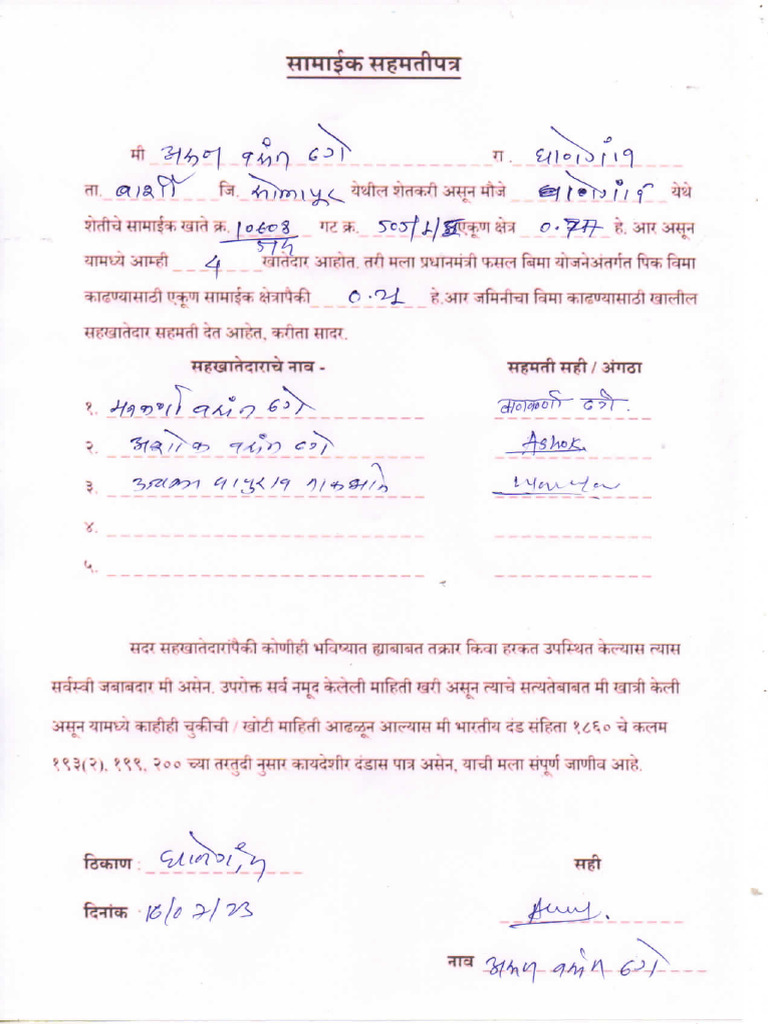 सामाईक सहमतीपत्र
मी अरुण वसंत ढगे रा. धानेगांव
ता. बार्शी जि. सोलापूर येथील शेतकरी असून मौजे धानेगांव येथे
शेतीचे सामाईक खाते क्र. गट क्र. 505/1/ एकूण क्षेत्र 0.77 हे. आर असून
यामध्ये आम्ही 4 खातेदार आहोत. तरी मला प्रधानमंत्री फसल बिमा योजनेअंतर्गत पिक विमा
काढण्यासाठी एकूण सामाईक क्षेत्रापैकी 0.21 हे.आर जमिनीचा विमा काढण्यासाठी खालील
सहखातेदार सहमती देत आहेत, करीता सादर.
सहखातेदाराचे नाव - सहमती सही / अंगठा
१. वसंत ढगे ढगे.
२. अशोक वसंत ढगे Ashok
३. बापुराव
४.
५.
सदर सहखातेदारांपैकी कोणीही भविष्यात ह्याबाबत तक्रार किवा हरकत उपस्थित केल्यास त्यास
सर्वस्वी जबाबदार मी असेन. उपरोक्त सर्व नमूद केलेली माहिती खरी असून त्याचे सत्यतेबाबत मी खात्री केली
असून यामध्ये काहीही चुकीची / खोटी माहिती आढळून आल्यास मी भारतीय दंड संहिता १८६० चे कलम
१९३(२), १९९, २०० च्या तरतुदी नुसार कायदेशीर दंडास पात्र असेन, याची मला संपूर्ण जाणीव आहे.
ठिकाण : धानेगांव सही
दिनांक 16/07/23
नाव अरुण वसंत ढगे